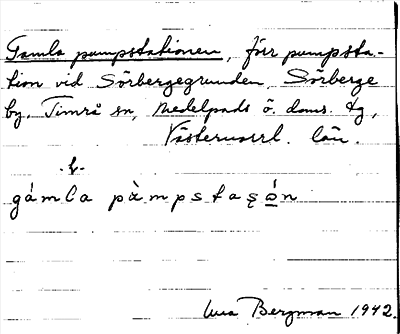 Gamla pumpstationen, förr pumpsta-
tion vid Sörbergegrunden, Sörberge
by, Timrå sn, Medelpads ö. doms. tg,
Västernorrl. län.
-h-
gámla pàmpstaşǻn
Bergman 1942.